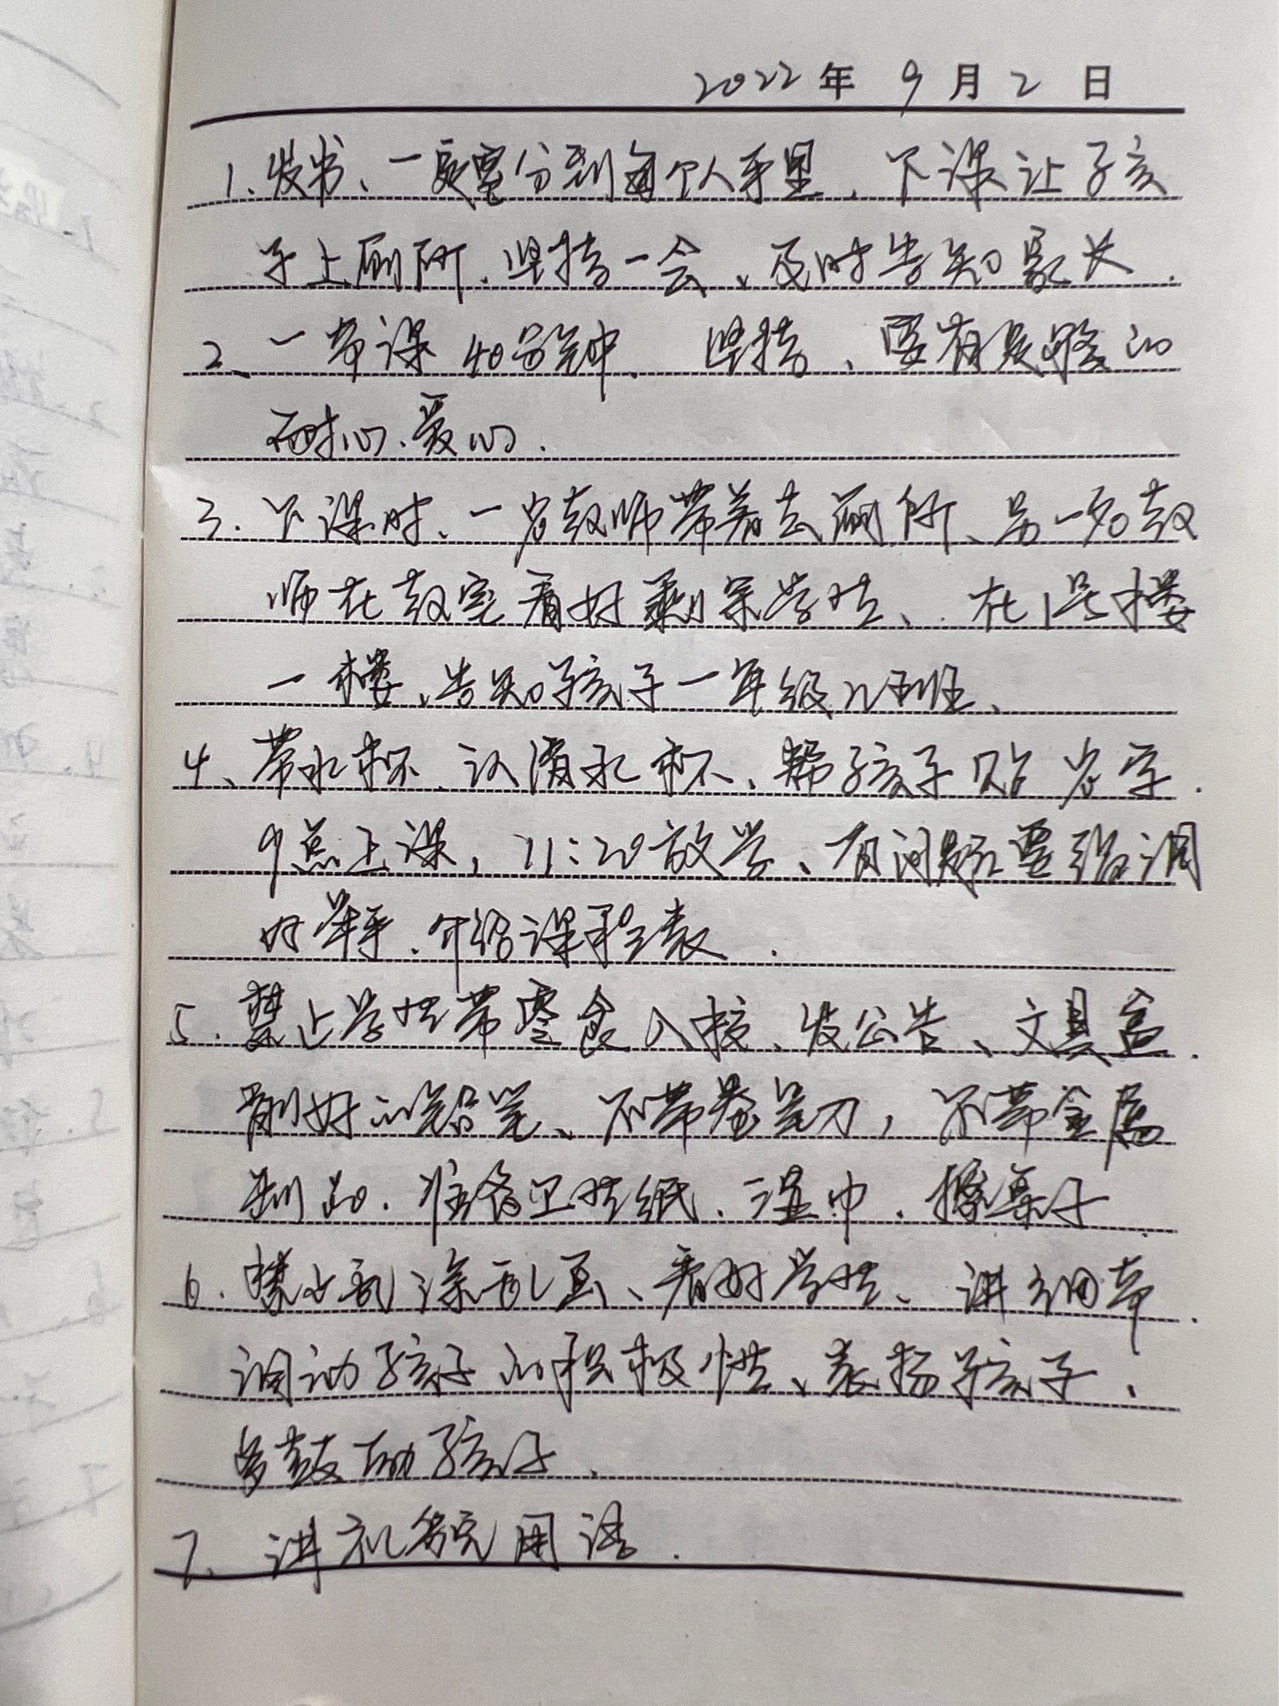 2022年 9月 2 日
1、发书、一定要分到每个人手里、下课让子孩
子上厕所、坚持一会、及时告知家长.
2、一节课 40分钟、坚持、要有足够的
耐心、爱心.
3. 下课时、一名教师带着去厕所、另一名教
师在教室看好剩余学生、在1号楼
一楼、告知孩子一年级几班、
4、带水杯、认清水杯、帮孩子贴名字.
9点上课，11:20放学、有问题要强调
好举手、介绍课程表.
5. 禁止学生带零食入校、发公告、文具盒.
削好的铅笔、不带卷笔刀，不带金属
制品. 准备卫生纸、湿巾、擦桌子
6. 禁止乱涂乱画、看好学生、讲细节.
调动孩子的积极性、表扬孩子、
多鼓动孩子、
7、讲礼貌用语.